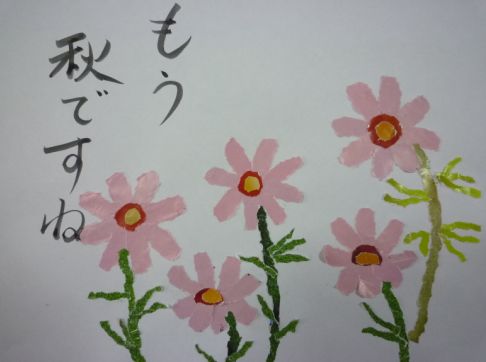 もう
秋ですね